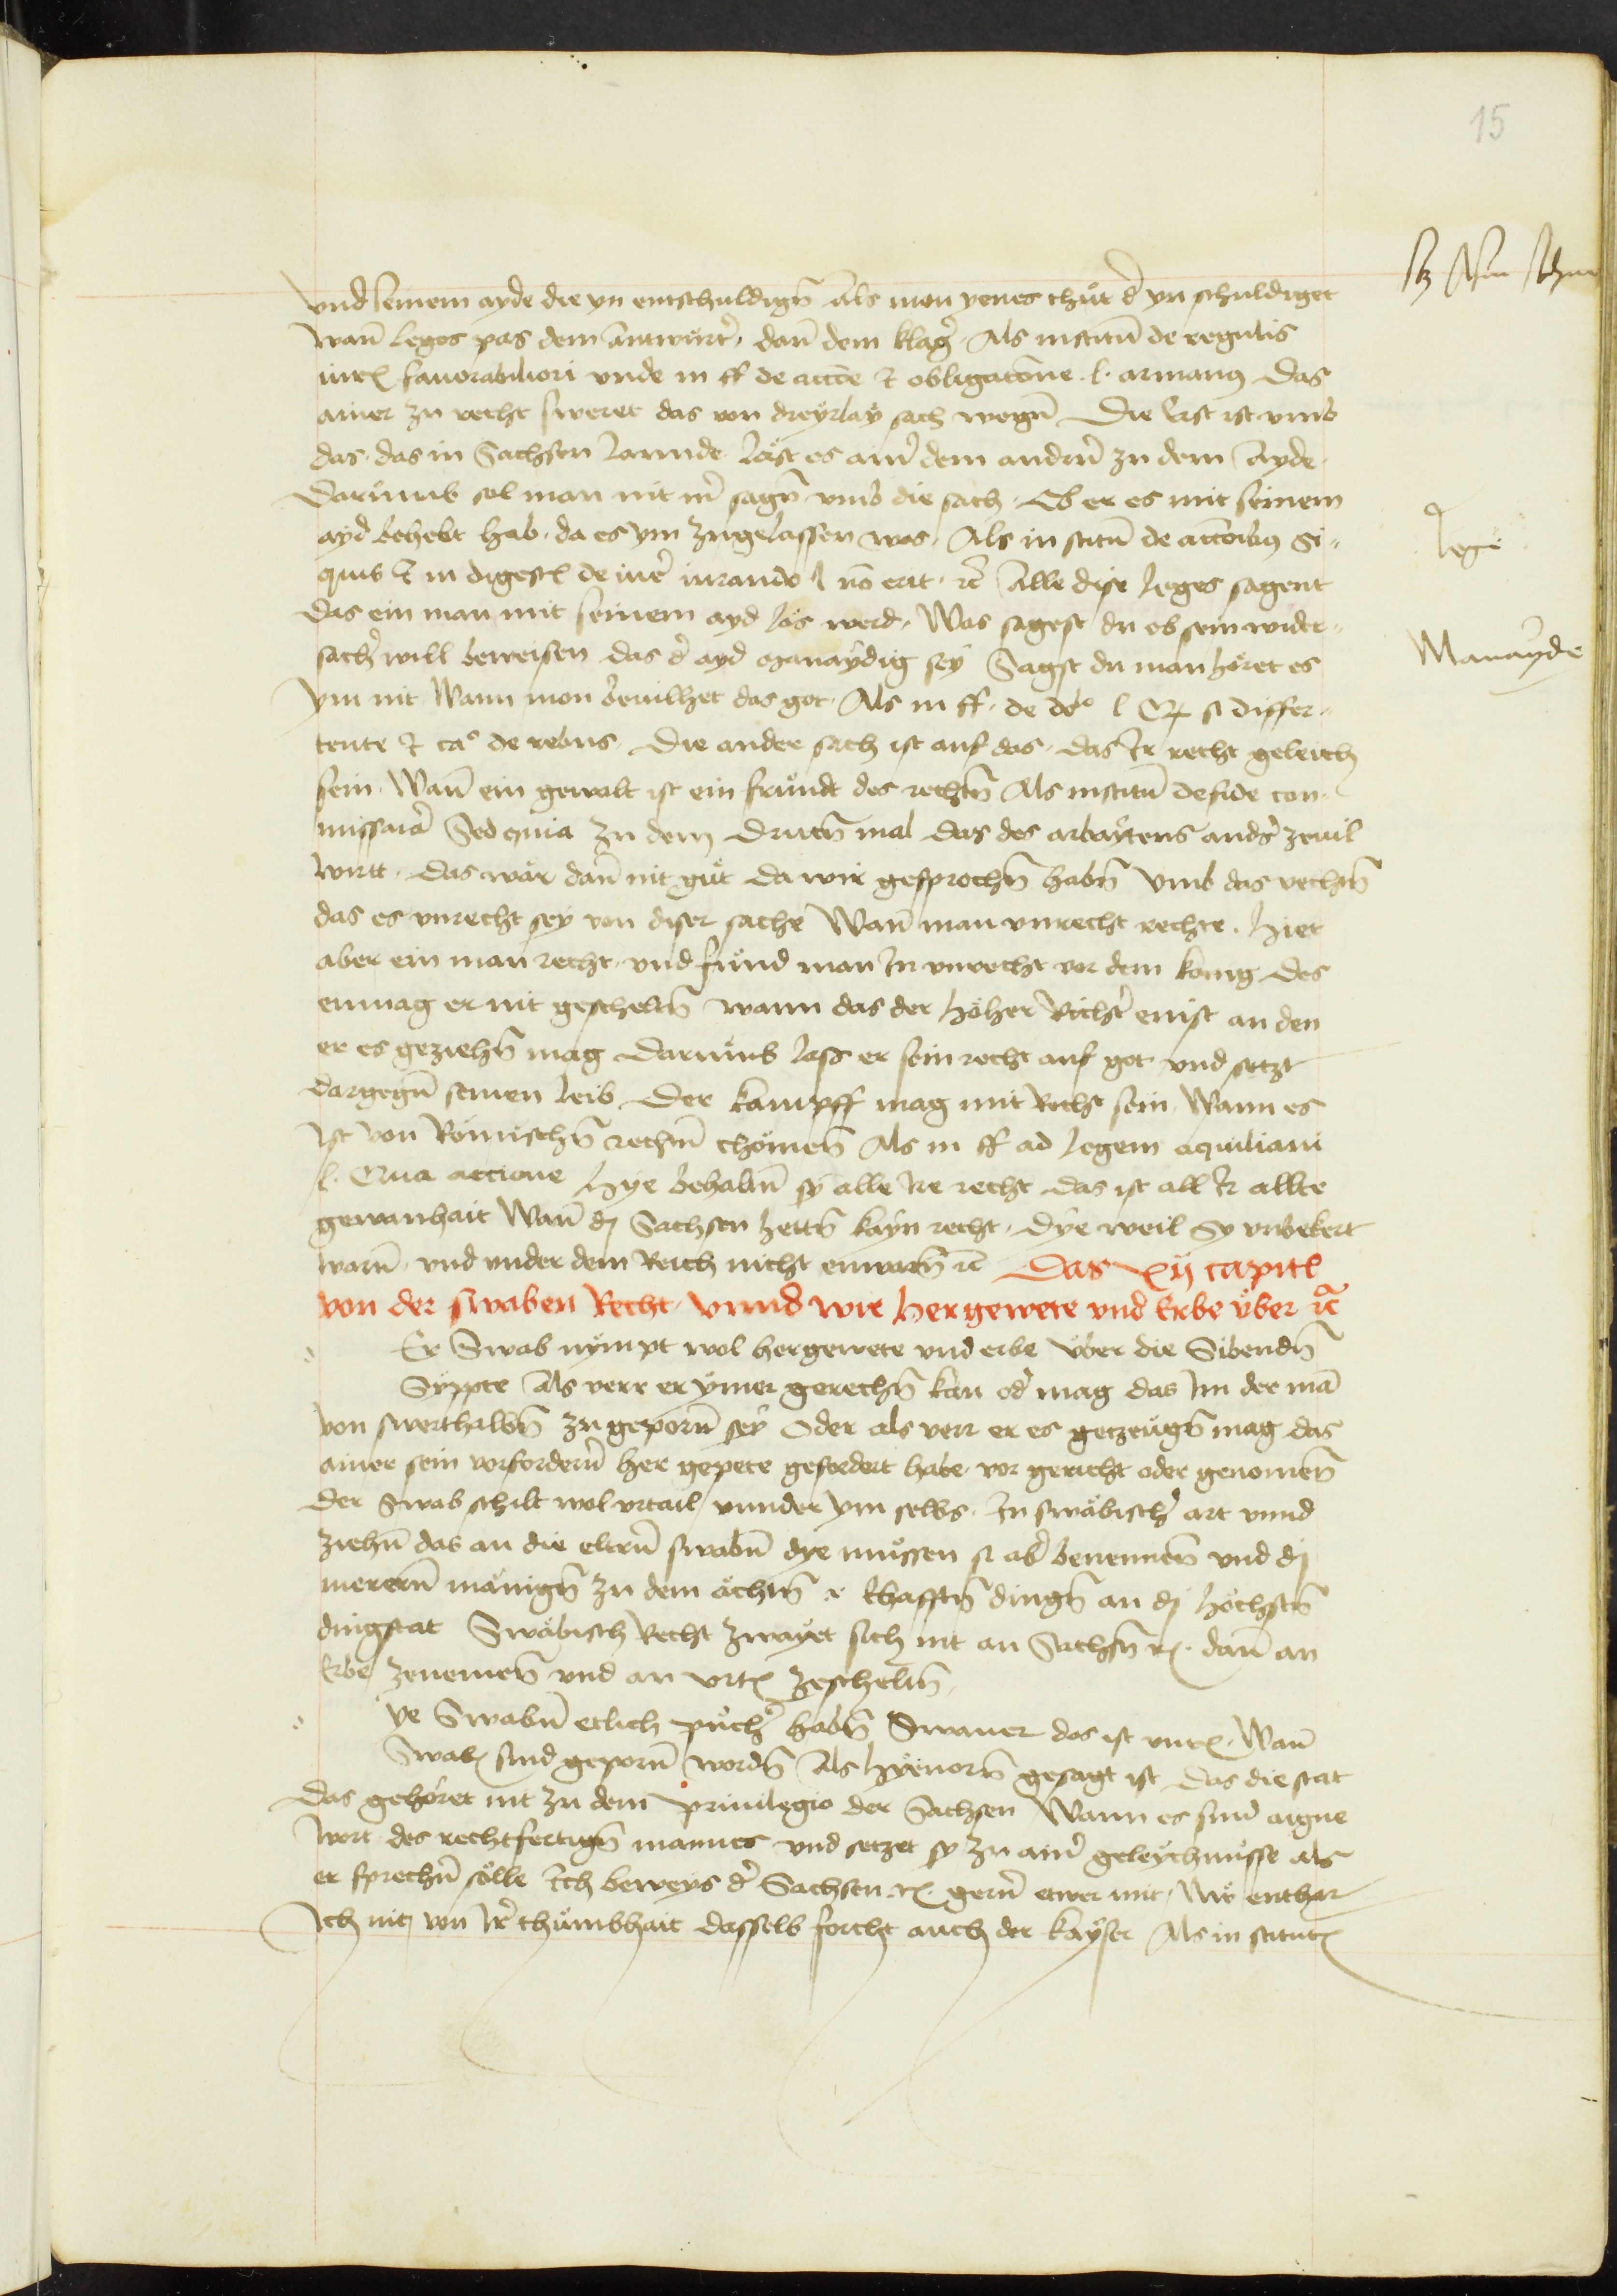 15
vnd seinem ayde die yn entschuldign̄ Als mon yenes thuͦt d' yn schuldiget
wan̄ leges pas dem antwuͤrt' dan̄ dem klag' Als institū de regulis
iur fauorabiliori vnde in ff de accōe et obligacōne l. arrianus Das
ainer zu recht sweret das von dreyrlay sach wegn̄ Die Erst ist vmb
das das in Sachsen lannde läst es ain' dem andern̄ zu dem Ayde
Darumb sol man nit m' sagn̄ vmb die sach Ob er es mit seinem
ayd behebt hab da es ym zugelassen was Als in stitū de actōibus Si
Lege
quis et in digest de iure iurando l nō erit rc̄ Alle dise leges sagent
das ein man mit seinem ayd los werd Was sagest du ob sein wider
Manayde
sach' will beweisen das d' ayd manaydig sey Sagst du man höret es
ym nit Wann mon beuilhet das got Als in ff de do l si differ
tente et ca° de rebus Die ander sach ist auf das das Ir recht geleich
sein Wan̄ ein gewalt ist ein frundt des rechtn̄ Als institū de fide con
missaria Sed quia Zu dem Dritn̄ mal das des arbaytens and's zeuil
wirt das wär dan̄ nit guͦt da wir gesprochn̄ habn̄ vmb das rechtn̄
das es vnrecht sey von diser sache Wan̄ man vnrecht rechte hiet
aber ein man recht vnd fuͤnd man In vnrecht vor dem konig des
enmag er nit gescheltn̄ wann das der höher Richt' enist an den
er es geziehn̄ mag Darumb lass er sein recht auf got vnd setzt
dargegn̄ seinen leib Der kampff mag mit Recht sein Wann es
ist von Römischn̄ rechtn̄ chömen̄ Als in ff ad legem aquiliam
l. Qua actione Hye behaltn̄ sy alle Ire recht das ist all Ir allte
gewanhait Wan̄ dj Sachsen hettn̄ kayn recht Dye weil Sy vnbekert
warn̄ vnd vnder dem Reich nicht enwarn̄ rc̄ Das xij capitl
von der swaben Recht vnnd wie hergewete vnd Erbe uͤber rc̄
Er Swab nympt wol hergewete vnd erbe uͤber die Sibendn̄
Syppte Als verr er ymer gerechn̄ kan od' mag das Im der mā
von swerthalbn̄ zu geporn̄ sey Oder als verr er es getzeuͤgn̄ mag das
ainer sein vorfordern̄ her gepete gefordert habe vor gericht oder genomen̄
der Swab schilt wol vrtail vnnder ym selbs In swäbisch' art vnnd
ziehn̄ das an die eltern̄ swabn̄ dye muͤssen si ab' benennen̄ vnd dj
merern̄ mänign̄ zu dem ächtn̄ rhafftn̄ dingn̄ an dj höchstn̄
dingstat Swäbisch Recht zwayet sich nit an Sachsn̄ r dan̄ an
Erbe zenemen̄ vnd an vrt zescheltn̄
ye Swabn̄ etlich puͤch' habn̄ Swauer das ist vnr Wan̄
Swab sind geporn̄ wordn̄ Als hyeuorn̄ gesagt ist das die stat
das gehöret nit zu dem priuilegio der Sachsen Wann es sind aigne
wort des rechtfertign̄ mannes vnd setzet sy zu ain' geleychnuͤsse als
er sprechn̄ sölle Ich beweys d' Sachsen r gern̄ etwer mit wie enthar
Ich nit von Ir' thuͤmbhait dasselb forcht auch der kayser Als in stitut